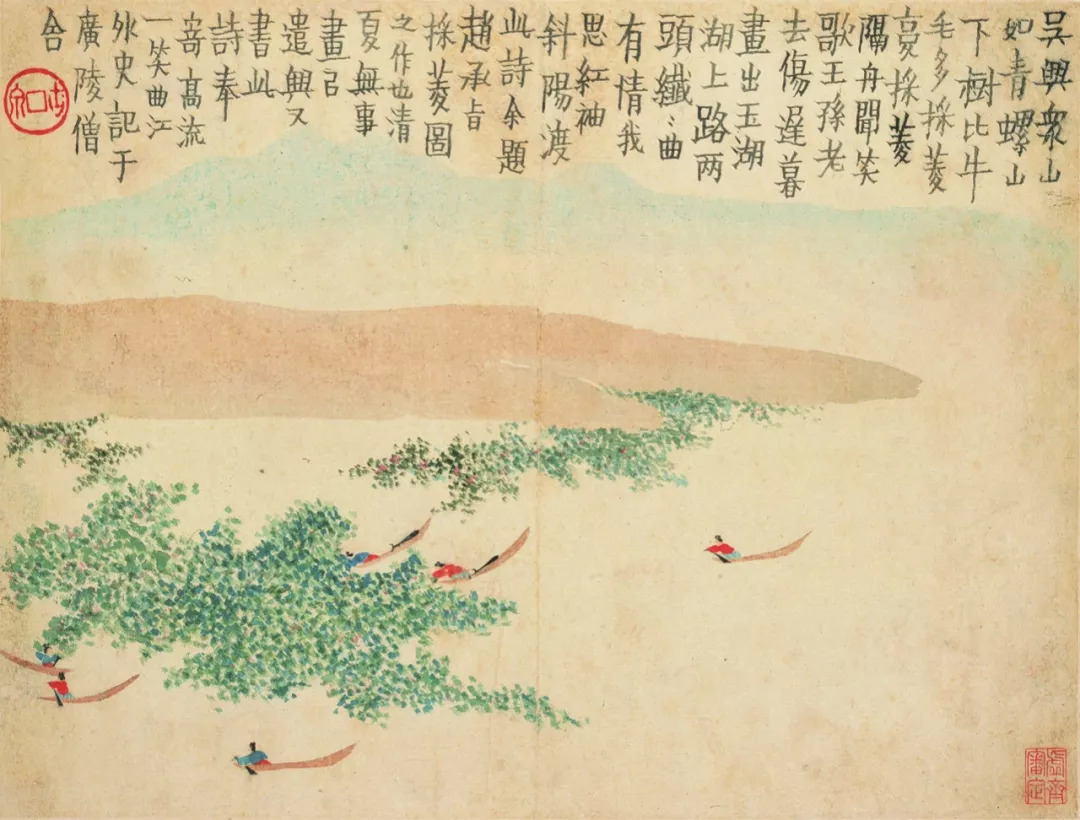 吳興衆山
如青螺山
下樹比牛
毛多採菱
复採菱
隔舟聞笑
歌王孫老
去傷遲暮
畫出玉湖
湖上路两
頭纖〻曲
有情我
思紅袖
斜陽渡
此詩余題
趙承旨
採菱圖
之作也清
夏無事
畫㠯
遣興又
書此
詩奉
寄高流
一笑曲江
外史記于
廣陵僧
舍
虛齋審定